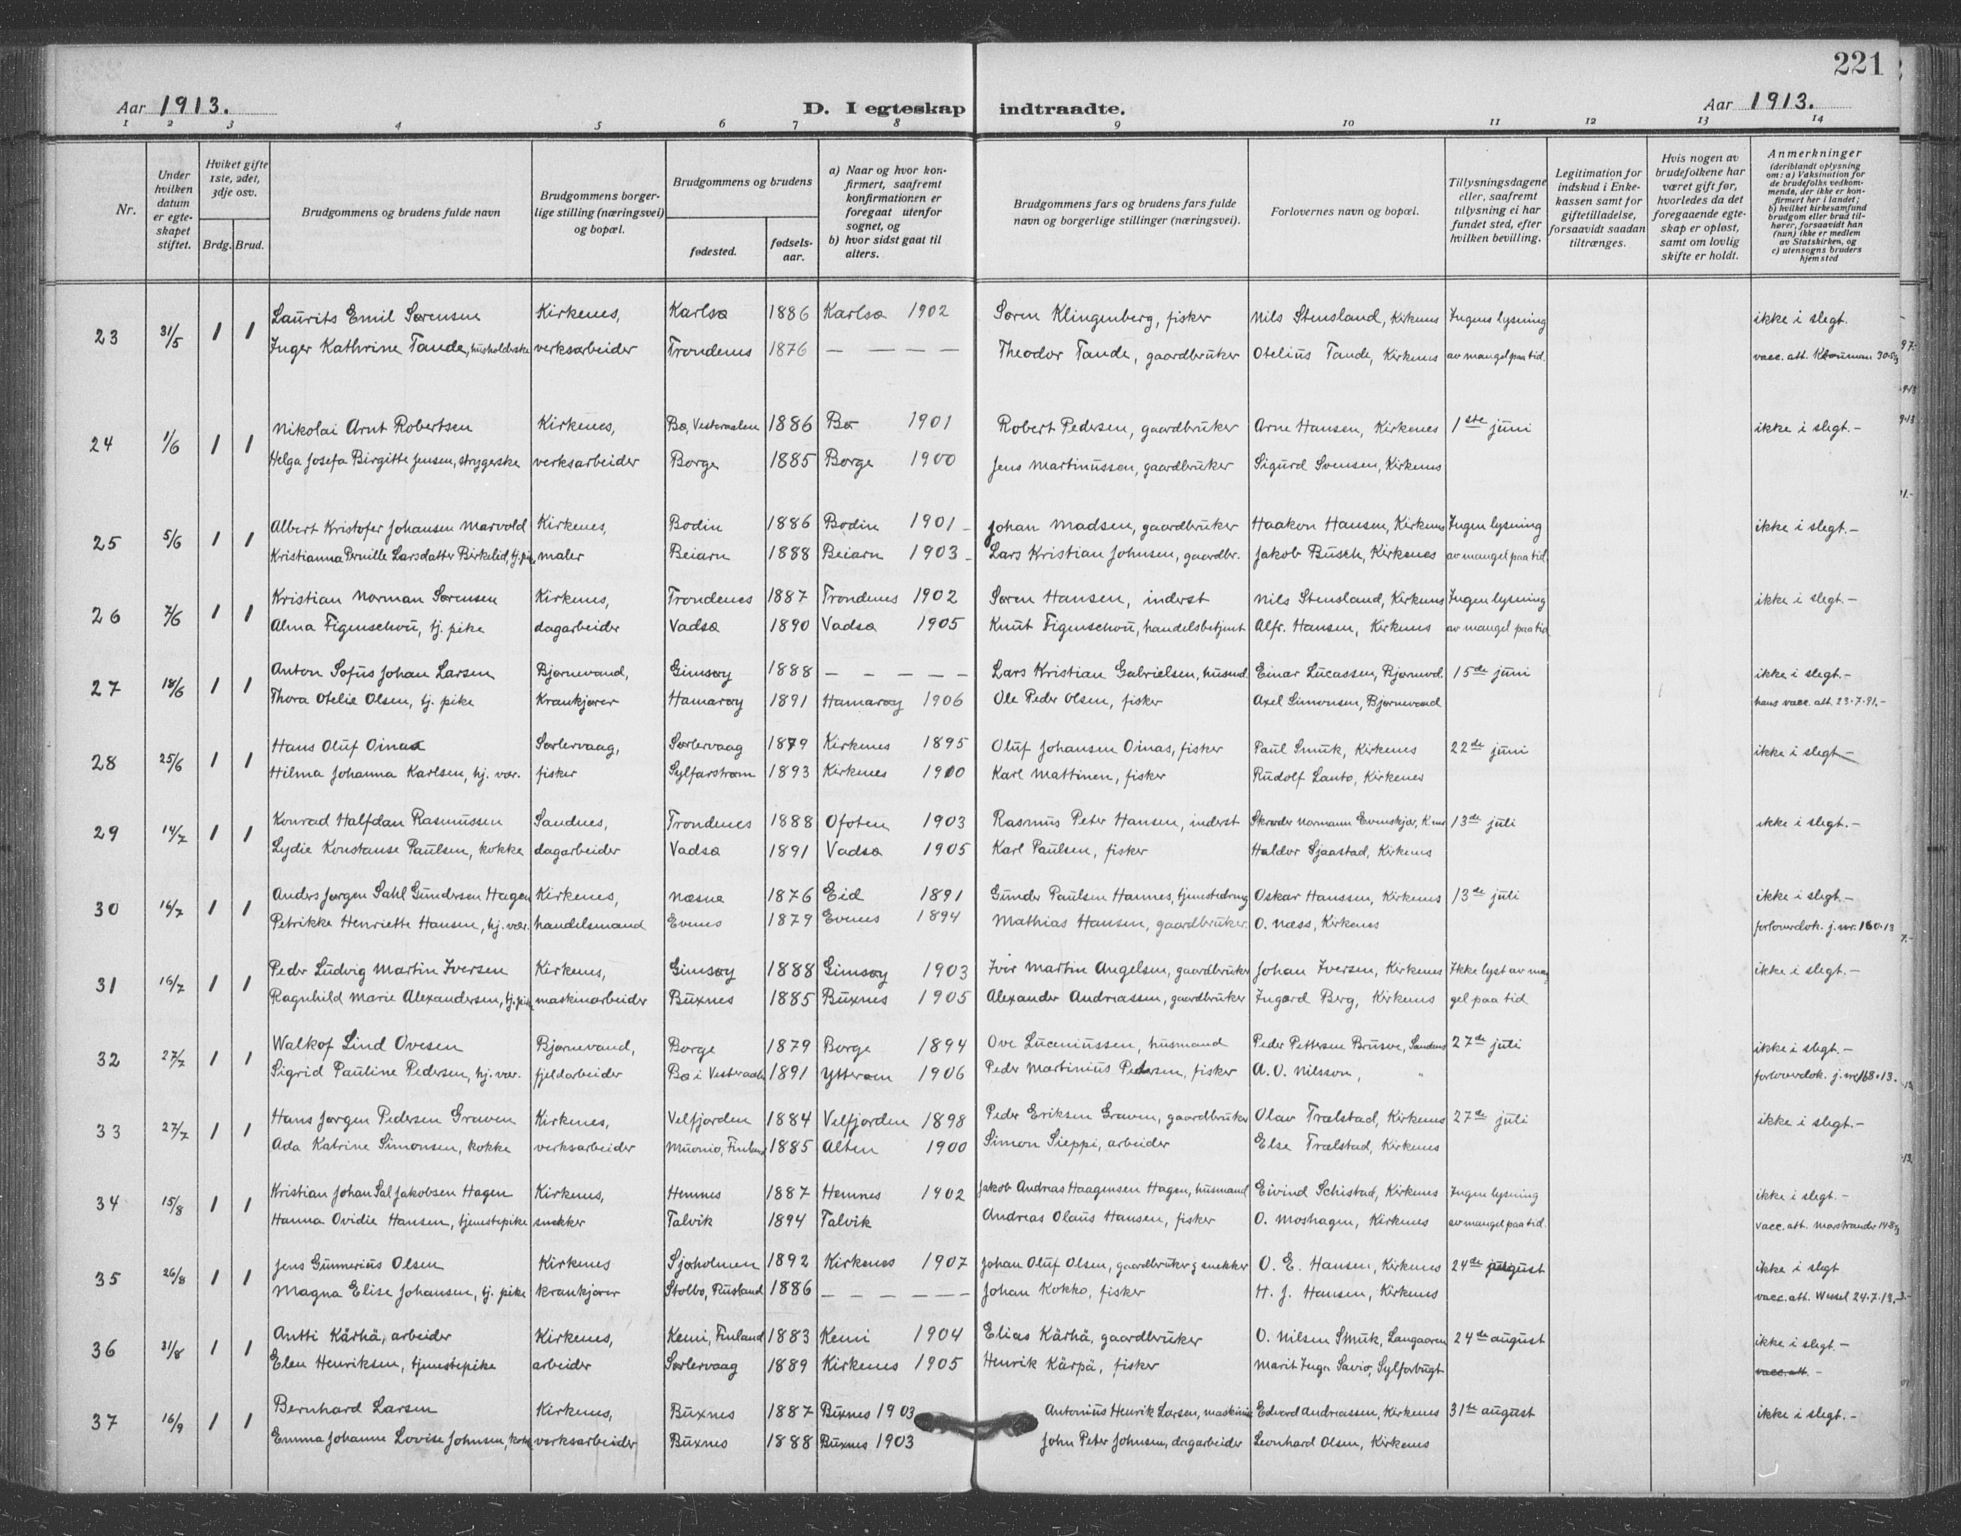 221
Aar 1913.
D. I egteskap indtraadte.
Aar 1913.
1 2 3 4 5 6 7 8 9 10 11 12 13 14
Nr.
Under hvilken datum er egteskapet stiftet.
Hvilket gifte 1ste, 2det, 3dje osv.
Brdg. Brud.
Brudgommens og brudens fulde navn
Brudgommens borgerlige stilling (næringsvei) og bopæl.
Brudgommens og brudens
fødested.
fødselsaar.
a) Naar og hvor konfirmert, saafremt konfirmationen er foregaat utenfor sognet, og
b) hvor sidst gaat til alters.
Brudgommens fars og brudens fars fulde navn og borgerlige stillinger (næringsvei).
Forlovernes navn og bopæl.
Tillysningsdagene eller, saafremt tillysning ei har fundet sted, efter hvilken bevilling.
Legitimation for indskud i Enkekassen samt for giftetilladelse, forsaavidt saadan tiltrænges.
Hvis nogen av brudefolkene har været gift før, hvorledes da det foregaaende egteskap er opløst, samt om lovlig skifte er holdt.
Anmerkninger
(deriblandt oplysning om: a) Vaksination for de brudefolks vedkommende, der ikke er konfirmert her i landet; b) hvilket kirkesamfund brudgom eller brud tilhører, forsaavidt han (hun) ikke er medlem av Statskirken, og c) utensogns bruders hjemsted
23 31/5 1 1 Laurits Emil Sørensen Kirkenes, Karlsø 1886 Karlsø 1902 Søren Klingenberg, fisker Nils Stensland, Kirkenes Ingen lysning ikke i slegt.
Inger Kathrine Tande, husholderske verksarbeider Trondenes 1876 — — — — Theodor Tande, gaardbruker Otelius Tande, Kirkenes av mangel paa tid. vacc. att.
24 1/6 1 1 Nikolai Arnt Robertsen Kirkenes, Bø, Vesteraalen 1886 Bø 1901 Robert Pedersen, gaardbruker Arne Hansen, Kirkenes 1ste juni ikke i slegt.-
Helga Josefa Birgitte Jensen, strygerske verksarbeider Borge 1885 Borge 1900 Jens Martinussen, gaardbruker Sigurd Svensen, Kirkenes
25 5/6 1 1 Albert Kristofer Johansen Marvold Kirkenes, Bodin 1886 Bodin 1901 - Johan Madsen, gaardbruker Haakon Hansen, Kirkenes Ingen lysning ikke i slegt.-
Kristianna Pernille Larsdatter Birkelid, tj. pike maler Beiarn 1888 Beiarn 1903 - Lars Kristian Johnsen, gaardbr. Jakob Busch, Kirkenes av mangel paa tid.
26 7/6 1 1 Kristian Norman Sørensen Kirkenes, Trondenes 1887 Trondenes 1902 Søren Hansen, inderst Nils Stensland, Kirkenes Ingen lysning ikke i slegt.-
Alma Figenschou, tj. pike dagarbeider Vadsø 1890 Vadsø 1905 Knut Figenschou, handelsbetjent Alfr. Hansen, Kirkenes av mangel paa tid
27 18/6 1 1 Anton Sofus Johan Larsen Bjørnevand, Gimsøy 1888 — — — — Lars Kristian Gabrielsen, husmd. Einar Lucassen, Bjørnevd. 15de juni ikke i slegt.-
Thora Otelie Olsen, tj. pike Krankjører Hamarøy 1891 Hamarøy 1906 Ole Peder Olsen, fisker Axel Simonsen, Bjørnevand hans vacc. att. 23.7.91.-
28 25/6 1 1 Hans Oluf Oinas Sørlervaag, Sørlervaag 1879 Kirkenes 1895 Oluf Johansen Oinas, fisker Paul Smuk, Kirkenes 22de juni ikke i slegt-
Hilma Johanna Karlsen, hj. vær. fisker Sylfarstrøm 1893 Kirkenes 1900 Karl Mattinen, fisker Rudolf Lanto, Kirkenes
29 14/7 1 1 Konrad Halfdan Rasmussen Sandnes, Trondenes 1888 Ofoten 1903 Rasmus Peter Hansen, inderst Skræder Normann Evenskjær, 13de juli ikke i slegt.-
Lydie Konstanse Paulsen, kokke dagarbeider Vadsø 1891 Vadsø 1905 Karl Paulsen, fisker Haldor Sjaastad, Kirkenes
30 16/7 1 1 Anders Jørgen Sahl Gundersen Hagen Kirkenes, Næsne 1876 Eid 1891 Gunder Paulsen Hannes, Oskar Hanssen, Kirkenes 13de juli ikke i slegt.-
Petrikke Henriette Hansen, hj. vær. handelsmand Evenes 1879 Evenes 1894 Mathias Hansen, gaardbruker. O. Næss, Kirkenes forloverdok. j. nr. 160.13
31 16/7 1 1 Peder Ludvig Martin Iversen Kirkenes, Gimsøy 1888 Gimsøy 1903 Iver Martin Angelsen, gaardbruker Johan Iversen, Kirkenes Ikke lyst av man ikke i slegt.-
Ragnhild Marie Alexandersen, tj. pike maskinarbeider Buxnes 1885 Buxnes 1905 Alexander Andreassen, gaardbruker Ingard Berg, Kirkenes gel paa tid
32 27/7 1 1 Walkof Lind Ovesen Bjørnevand, Borge 1879 Borge 1894 Ove Luceniussen, husmand Peder Pettersen Brusve, Sandnes 27de juli ikke i slegt.-
Sigrid Pauline Pedersen, hj. vær. fjeldarbeider Bø i Vesteraalen 1891 Ytterøen 1906 Peder Martinius Pedersen, fisker A. O. Nilsson, " forloverdok. j. nr 168.13.
33 27/7 1 1 Hans Jørgen Pedersen Graven Kirkenes, Velfjorden 1884 Velfjorden 1898 Peder Eriksen Graven, gaardbruker Olav Trælstad, Kirkenes 27de juli ikke i slegt.-
Ada Katrine Simonsen, kokke verksarbeider Muonio, Finland 1885 Alten 1900 Simon Sieppi, arbeider Else Trælstad, Kirkenes
34 15/8 1 1 Kristian Johan Sal Jakobsen Hagen Kirkenes, Hemnes 1887 Hemnes 1902 Jakob Andreas Haagensen Hagen, husmand Eivind Schistad, Kirkenes Ingen lysning ikke i slegt.-
Hanna Ovidie Hansen, tjenestepike snekker Talvik 1894 Talvik Andreas Olaus Hansen, fisker O. Moshagen, Kirkenes av mangel paa tid. vacc. att. Marstrander 14 8/13
35 26/8 1 1 Jens Gunnerius Olsen Kirkenes Sjøholmen 1892 Kirkenes 1907 Johan Oluf Olsen, gaardbruker & snekker O. E. Hansen, Kirkenes 24de august ikke i slegt
Magna Elise Johansen, tj. pike krankjører Stolbo, Rusland 1886 — — — — Johan Kokko, fisker H. J. Hansen, Kirkenes vacc. att. Wessel 24.7.13.
36 31/8 1 1 Antti Kärhä, arbeider Kirkenes, Kemi, Finland 1883 Kemi 1904 Elias Kärhä, gaardbruker O. Nilsen Smuk, Langøren 24de august ikke i slegt.-
Elen Henriksen, tjenestepike arbeider Sørlervaag 1889 Kirkenes 1905 Henrik Kärpä, fisker Marit Inga Savio, Sylforbugt vacc. att. -
37 16/9 1 1 Bernhard Larsen Kirkenes, Buxnes 1887 Buxnes 1903 Antonius Henrik Larsen, maskinist Edvard Andreassen, Kirkenes 31te august ikke i slegt.-
Emma Johanne Lovise Johnsen, kokke verksarbeider Buxnes 1888 Buxnes 1903 John Peter Johnsen, dagarbeider Leonhard Olsen, Kirkenes